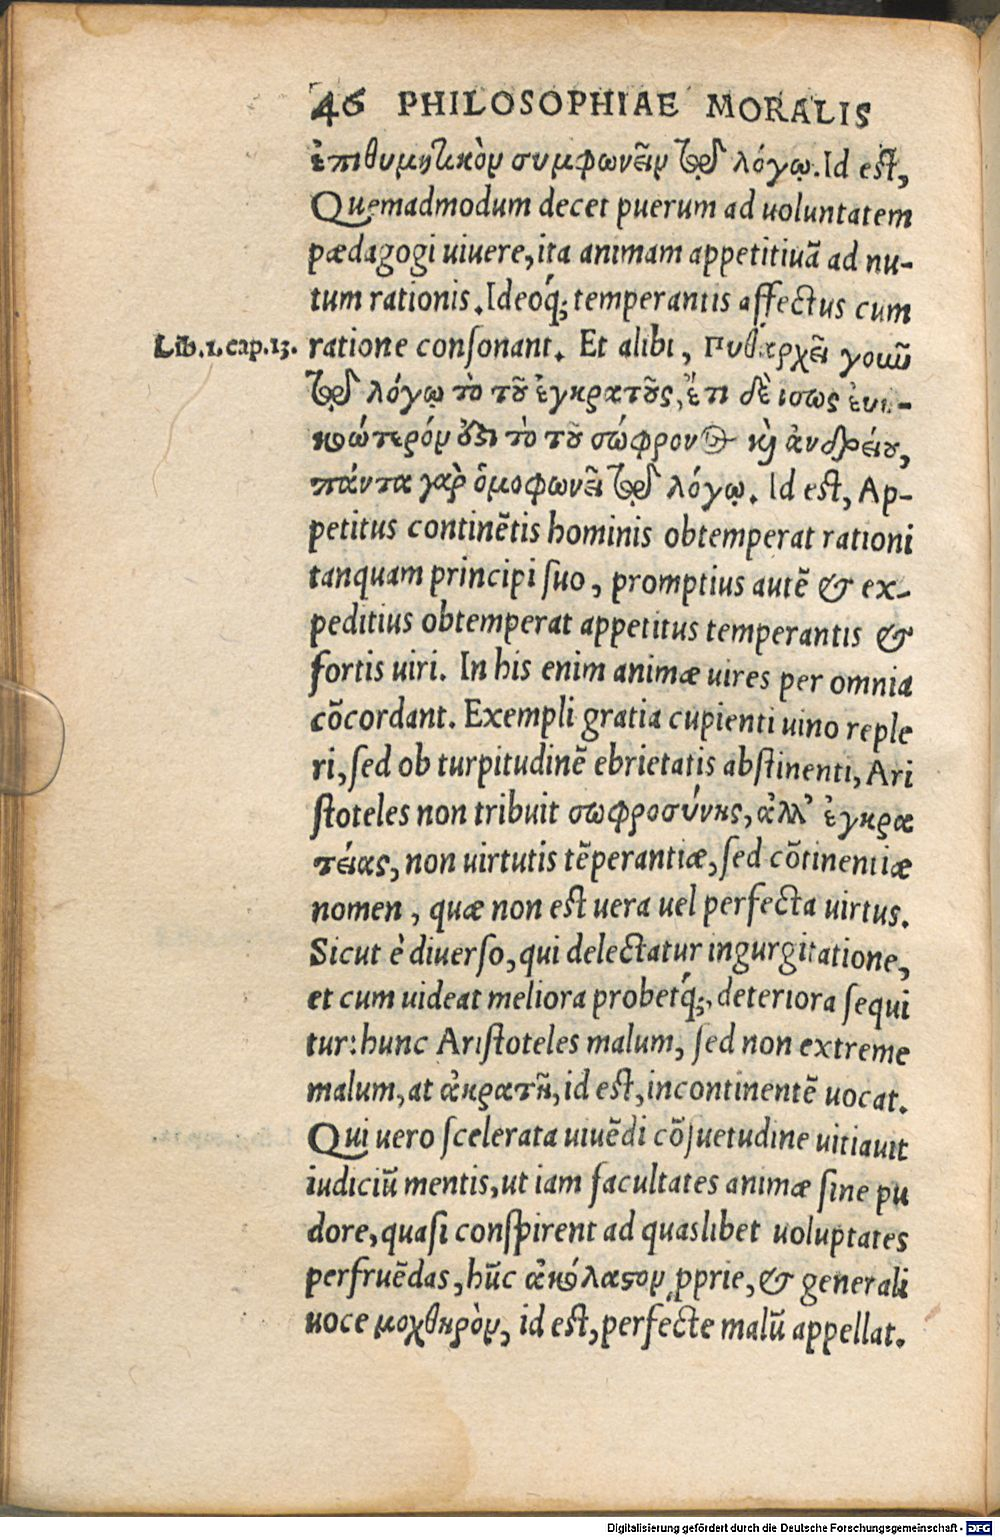 46 PHILOSOPHIAE MORALIS
ἐπιθυμητικὸν συμφωνεῖν τῷ λόγῳ. Id eſt,
Quemadmodum decet puerum ad uoluntatem
pædagogi uiuere, ita animam appetitiuā ad nu-
tum rationis. Ideoq́; temperantis affectus cum
Lib.1. cap.13. ratione conſonant. Et alibi, Πυθαρχεῖ γοιῦ
τῷ λόγῳ τὸ τοῦ ἐγκρατοῦς, ἔτι δὲ ισως ἐυη-
κοώτερόν ὅζι τὸ τοῦ σώφρονος καὶ ἀνδρείου,
πάντα γαρ̀ ὁμοφωνεῖ τῷ λόγῳ. Id eſt, Ap-
petitus continētis hominis obtemperat rationi
tanquam principi ſuo, promptius autē & ex-
peditius obtemperat appetitus temperantis &
fortis uiri. In his enim animæ uires per omnia
cōcordant. Exempli gratia cupienti uino reple
ri, ſed ob turpitudinē ebrietatis abſtinenti, Ari
ſtoteles non tribuit σωφροσύνης, ἀλλ’ ἐγκρα
τείας, non uirtutis tēperantiæ, ſed cōtinentiæ
nomen, quæ non eſt uera uel perfecta uirtus.
Sicut è diuerſo, qui delectatur ingurgitatione,
et cum uideat meliora probetq́;, deteriora ſequi
tur: hunc Ariſtoteles malum, ſed non extreme
malum, at ἀκρατῆ, id eſt, incontinentē uocat.
Qui uero ſcelerata uiuēdi cōſuetudine uitiauit
iudiciū mentis, ut iam facultates animæ ſine pu
dore, quaſi conſpirent ad quaslibet uoluptates
perfruēdas, hūc ἀκόλαϛον ꝓprie, & generali
uoce μοχθηρὸν, id eſt, perfecte malū appellat.
Digitalisierung gefördert durch die Deutsche Forschungsgemeinschaft - DFG